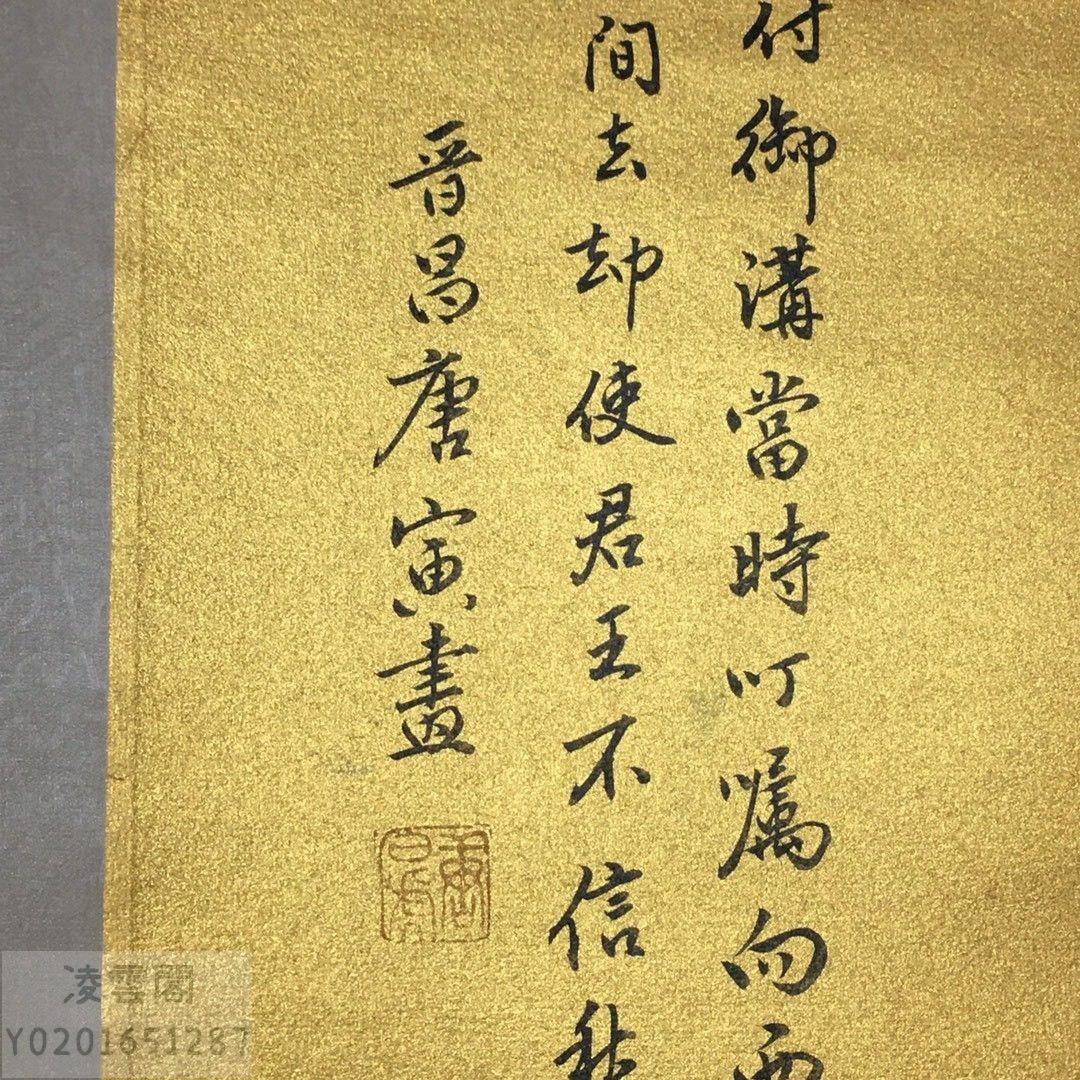 付御溝當時叮囑向西
間去却使君王不信秋
晋昌唐寅畫
凌雲閣
Y0201651287